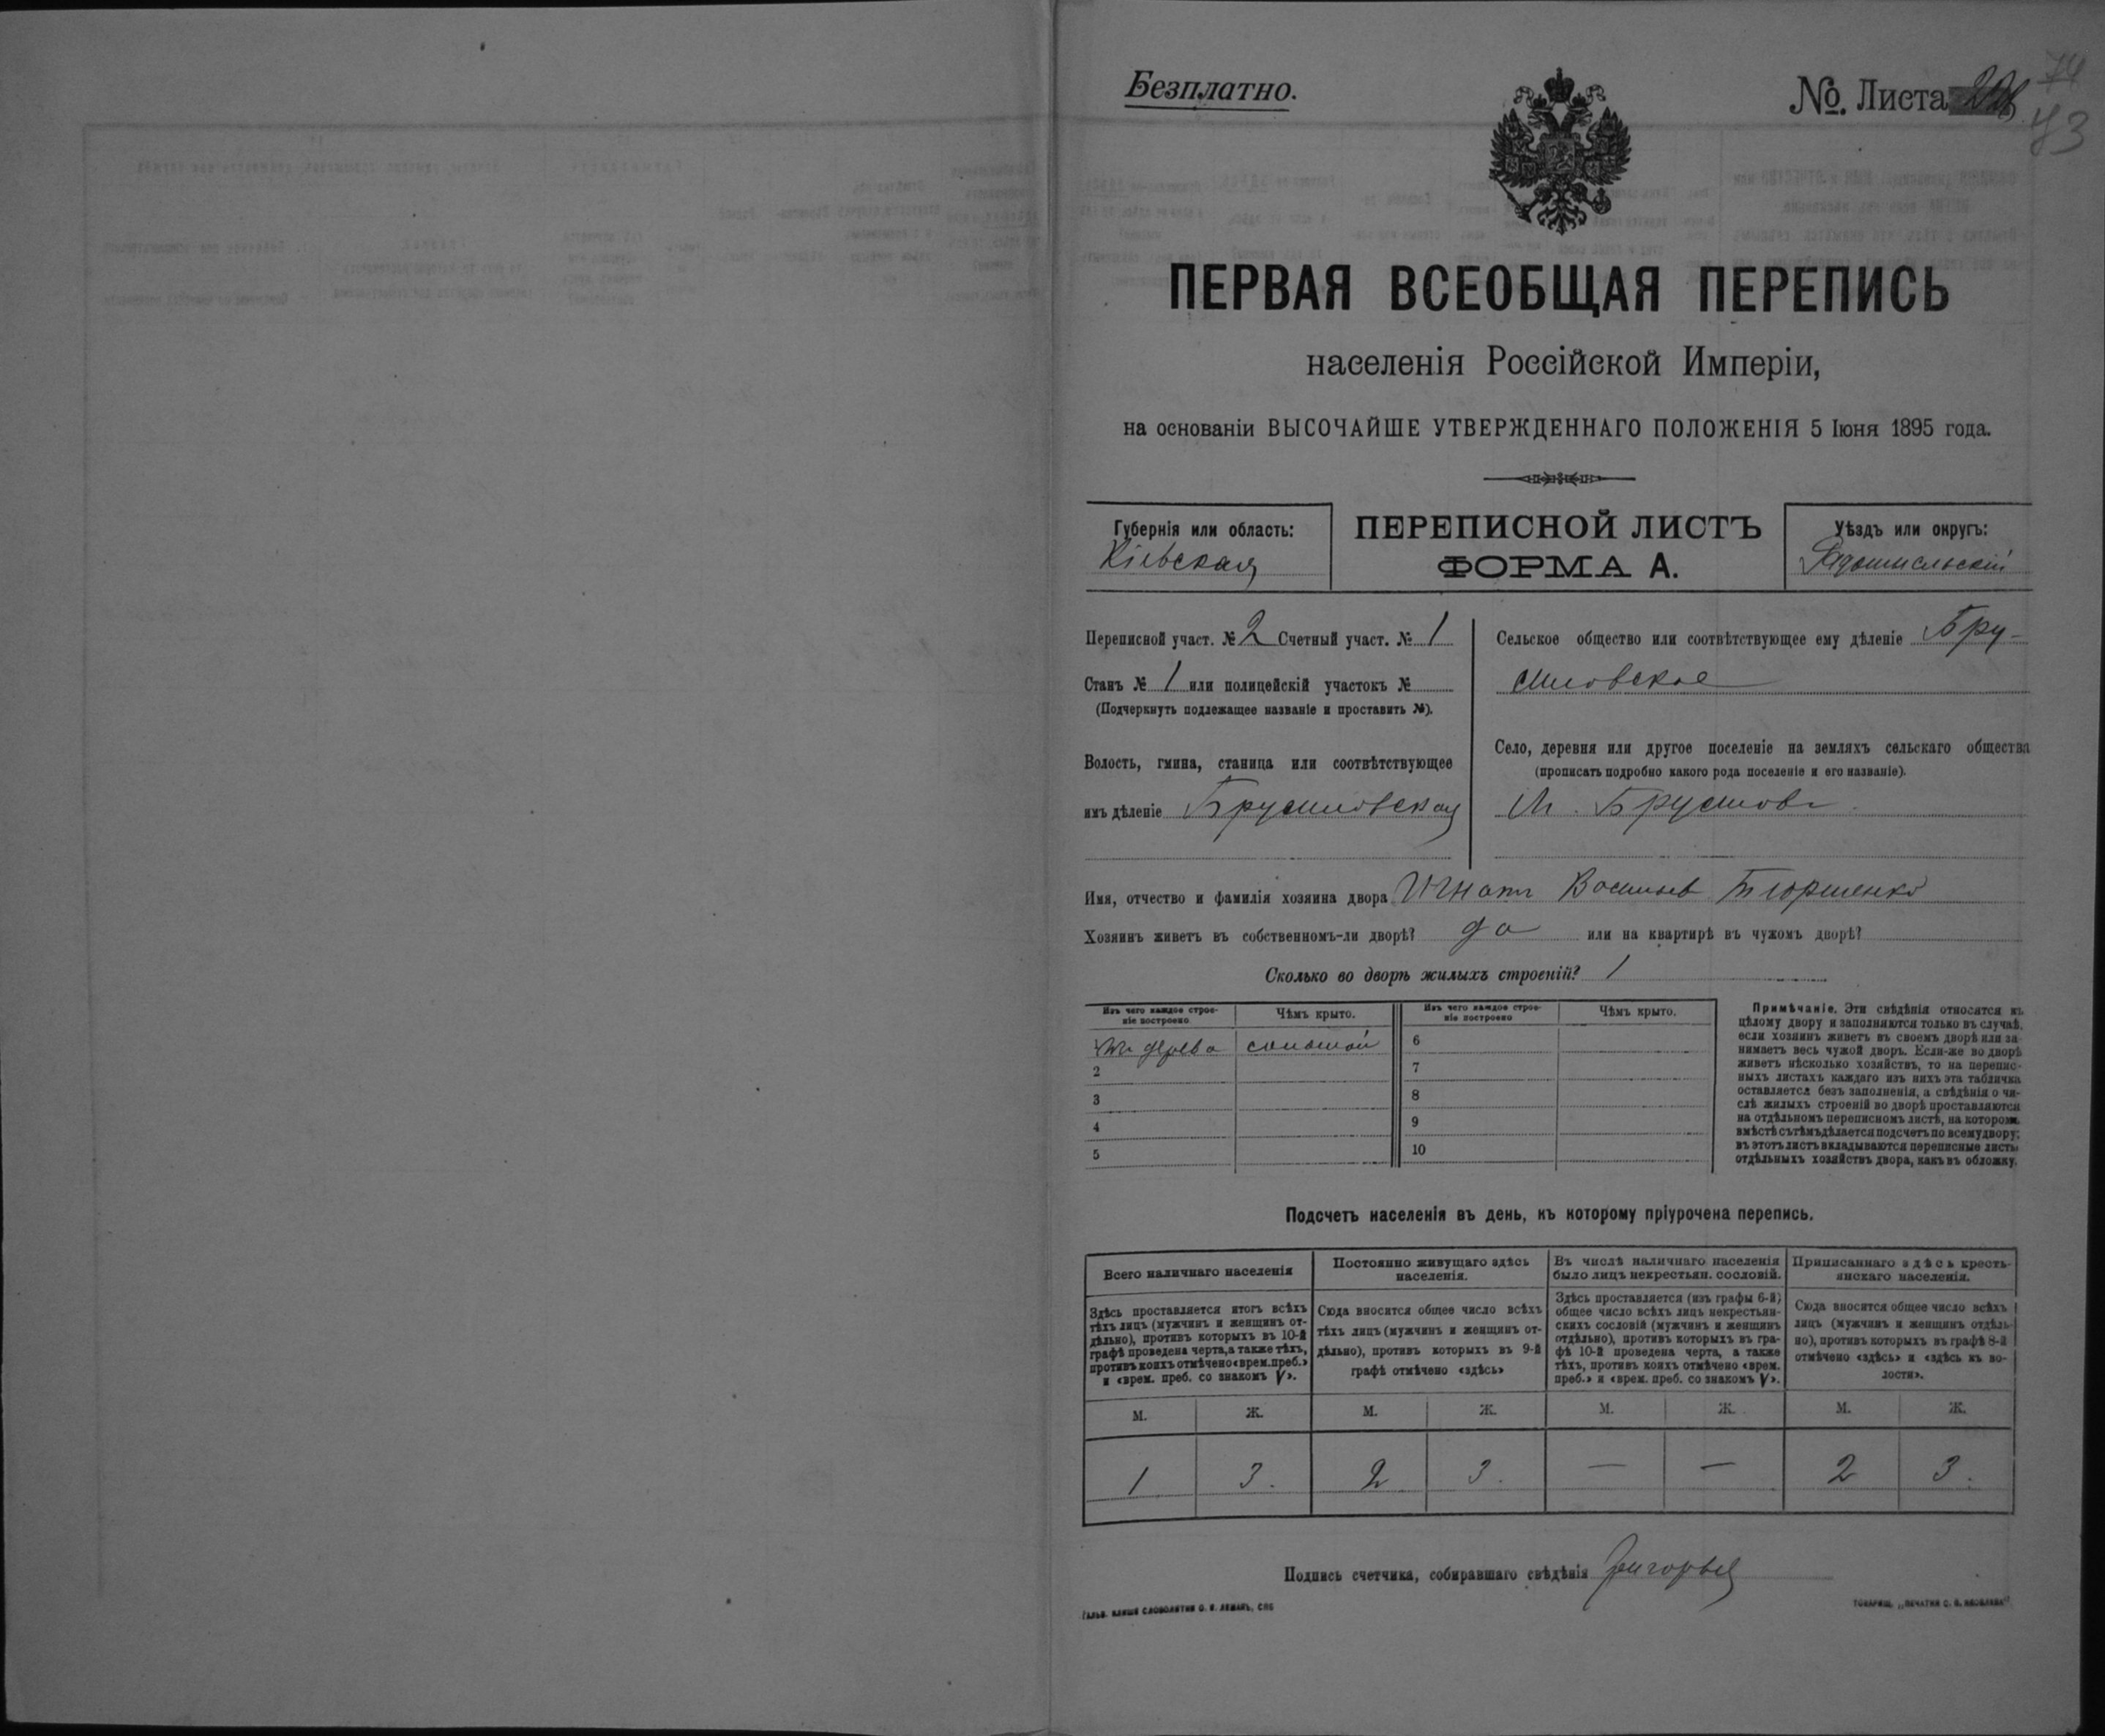 Безплатно.
№. Листа
74
43
ПЕРВАЯ ВСЕОБЩАЯ ПЕРЕПИСЬ
населенія Россійской Имперіи,
на основаніи ВЫСОЧАЙШЕ УТВЕРЖДЕННАГО ПОЛОЖЕНІЯ 5 Іюня 1895 года.
Губернія или область:
Кіевская
ПЕРЕПИСНОЙ ЛИСТЪ
ФОРМА А.
Уѣздъ или округъ:
Радомысльскій
Переписной участ. № 2 Счетный участ. № 1
Станъ № 1 или полицейскій участокъ №
(Подчеркнуть подлежащее названіе и проставить №).
Волость, гмина, станица или соотвѣтствующее
имъ дѣленіе Брусиловская
Сельское общество или соотвѣтствующее ему дѣленіе Бру-
силовское
Село, деревня или другое поселеніе на земляхъ сельскаго общества
(прописать подробно какого рода поселеніе и его названіе).
М. Брусиловъ
Имя, отчество и фамилія хозяина двора Игнатъ Васильев
Хозяинъ живетъ въ собственномъ-ли дворѣ? да или на квартирѣ въ чужомъ дворѣ?
Сколько во дворѣ жилыхъ строеній? 1
Изъ чего каждое строе-
ніе построено
Чѣмъ крыто.
Изъ чего каждое строе-
ніе построено
Чѣмъ крыто.
дерева соломой 6
2 7
3 8
4 9
5 10
Примѣчаніе. Эти свѣдѣнія относятся къ
цѣлому двору и заполняются только въ случаѣ,
если хозяинъ живетъ въ своемъ дворѣ или за-
нимаетъ весь чужой дворъ. Если-же во дворѣ
живетъ нѣсколько хозяйствъ, то на перепис-
ныхъ листахъ каждаго изъ нихъ эта табличка
оставляется безъ заполненія, а свѣдѣнія о чи-
слѣ жилыхъ строеній во дворѣ проставляются
на отдѣльномъ переписномъ листѣ, на которомъ
вмѣстѣ съ тѣмъ дѣлается подсчетъ по всему двору;
въ этотъ листъ вкладываются переписные листы
отдѣльныхъ хозяйствъ двора, какъ въ обложку.
Подсчетъ населенія въ день, къ которому пріурочена перепись.
Всего наличнаго населенія
Постоянно живущаго здѣсь
населенія.
Въ числѣ наличнаго населенія
было лицъ некрестьян. сословій.
Приписаннаго здѣсь кресть-
янскаго населенія.
Здѣсь проставляется итогъ всѣхъ
тѣхъ лицъ (мужчинъ и женщинъ от-
дѣльно), противъ которыхъ въ 10-й
графѣ проведена черта, а также тѣхъ,
противъ коихъ отмѣчено «врем. преб.»
и «врем. преб. со знакомъ V».
Сюда вносится общее число всѣхъ
тѣхъ лицъ (мужчинъ и женщинъ от-
дѣльно), противъ которыхъ въ 9-й
графѣ отмѣчено «здѣсь»
Здѣсь проставляется (изъ графы 6-й)
общее число всѣхъ лицъ некрестьян-
скихъ сословій (мужчинъ и женщинъ
отдѣльно), противъ которыхъ въ гра-
фѣ 10-й проведена черта, а также
тѣхъ, противъ коихъ отмѣчено «врем.
преб.» и «врем. преб. со знакомъ V».
Сюда вносится общее число всѣхъ
лицъ (мужчинъ и женщинъ отдѣль-
но), противъ которыхъ въ графѣ 8-й
отмѣчено «здѣсь» и «здѣсь къ во-
лости».
М. Ж. М. Ж. М. Ж. М. Ж.
1 3. 2 3. — — 2 3.
Подпись счетчика, собиравшаго свѣдѣнія
Гальв. клише словолитни О. И. Леманъ, СПБ
Товарищ. „Печатня С. П. Яковлева“